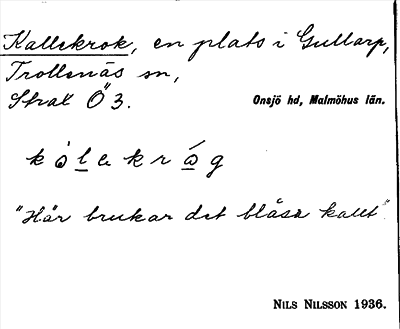 Kallekrok, en plats i Gullarp,
Trollenäs sn,
Strax Ö 3.
Onsjö hd, Malmöhus län.
kȯl̲ekrǫ́g
"Här brukar det blåsa kallt".
NILS NILSSON 1936.